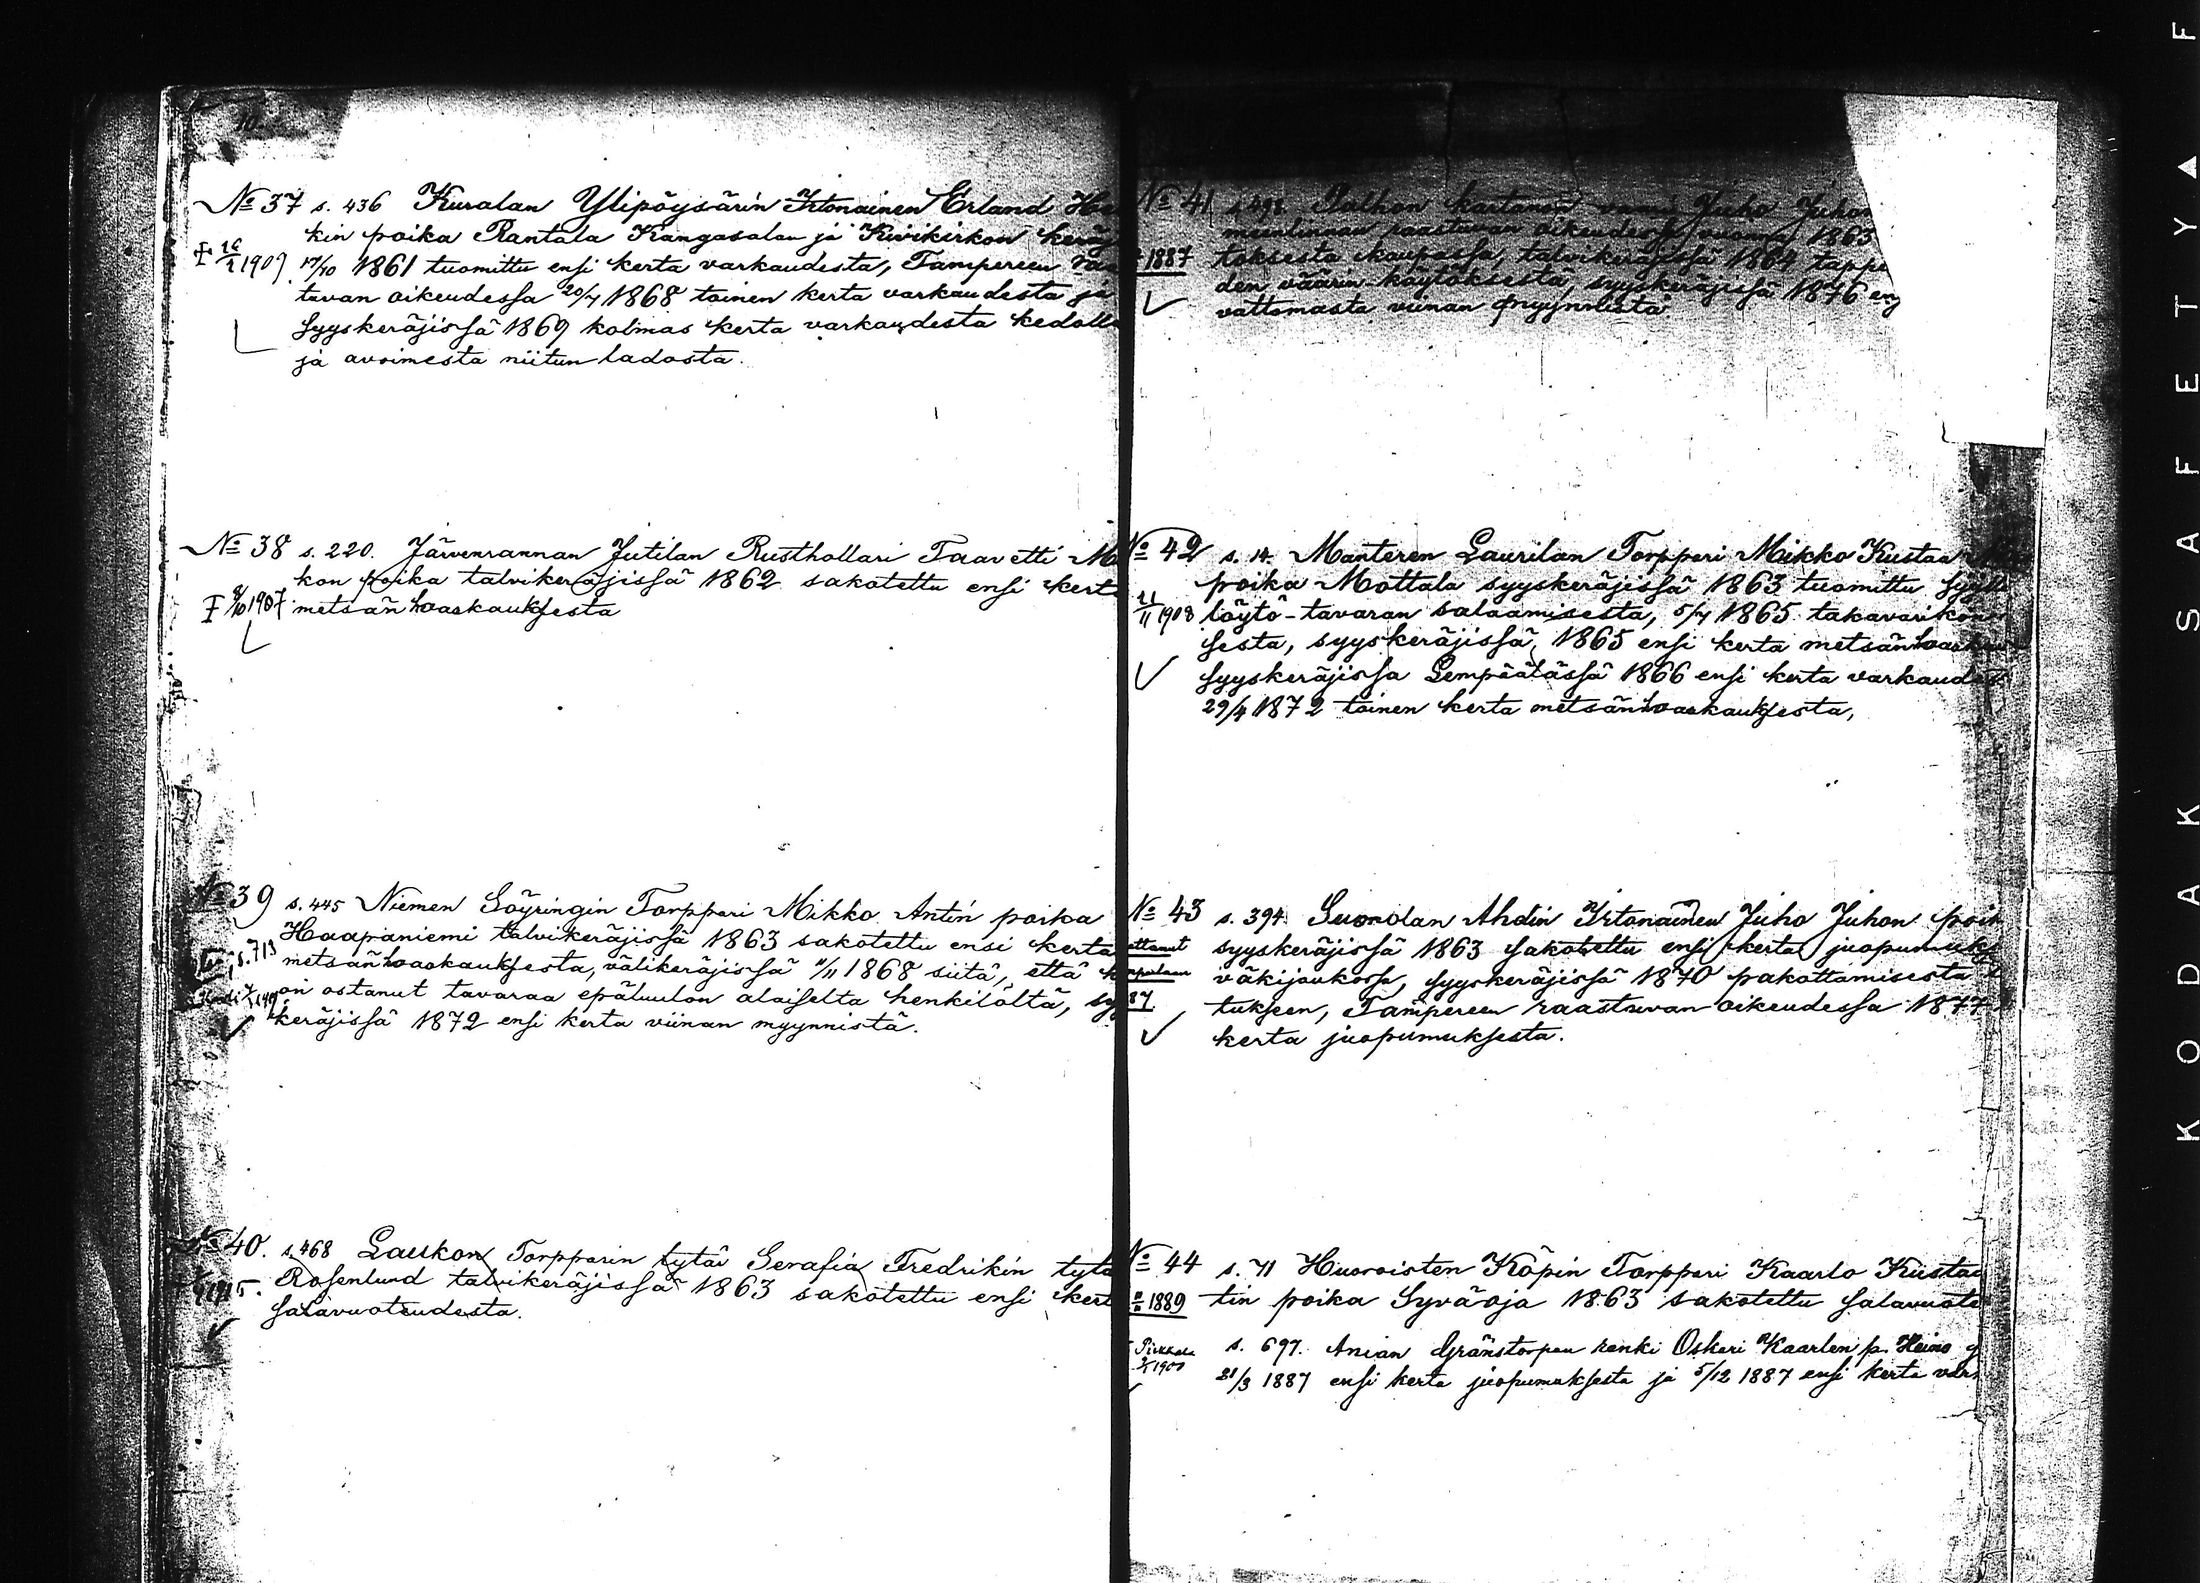 No 37 s. 436 Kuralan Ylipöysärin Irtonainen Erland
kin poika Rantala Kangasalan ja Kuvikirkon keräj
1909. 17/10 1861 tuomittu ensi kerta varkaudesta, Tampereen
tuvan oikeudessa 20/4 1868 toinen kerta varkaudesta ja
syyskeräjissä 1869 kolmas kerta varkaudesta kedolla
ja avoimesta niitun ladosta.
No 38 s. 220. Järvenrannan Jutilan Rusthollari Taavetti
kon poika talvikeräjissä 1862 sakotettu ensi kerta
1907 metsän haaskauksesta
No 39 s. 445 Niemen Söyringin Torppari Mikko Antin poika
Haapaniemi talvikeräjissä 1863 sakotettu ensi kerta
s. 713 metsän haaskauksesta, välikeräjissä 1868 siitä, että
on ostanut tavaraa epäluulon alaiselta henkilöltä,
keräjissä 1872 ensi kerta viinan myynnistä.
No 40. s. 468 Laukon Torpparin tytär Serafia Fredrikin tytä
Rosenlund talvikeräjissä 1863 sakotettu ensi kert
salavuoteudesta.
No 41 s. 498 kartanon Juho Juhon
raastuvan oikeudessa 1863
1887 kaupassa, talvikeräjissä 1864
den väärin käytöksestä, syyskeräjissä 1876
vattomasta viinan myynnistä.
No 42 s. 14. Manteren Laurilan Torppari Mikko Kustaa
poika Mottala syyskeräjissä 1863 tuomittu
1908 löytö-tavaran salaamisesta, 5/4 1865 takavarikon
sesta, syyskeräjissä 1865 ensi kerta metsänhaaskau
syyskeräjissä Lempäälässä 1866 ensi kerta varkaudes
29/4 1872 toinen kerta metsänhaaskauksesta,
No 43 s. 394. Suomolan Ahdin Irtonainen Juho Juhon poik
syyskeräjissä 1863 sakotettu ensi kerta juopumuks
väkijoukossa, syyskeräjissä 1870 pakottamisesta
87. tukseen, Tampereen raastuvan oikeudessa 1877
kerta juopumuksesta.
No 44 s. 71 Huoroisten Köpin Torppari Kaarlo Kustaa
1889 tin poika Syväoja 1863 sakotettu salavuote
Pirkkala s. 697. Anian Gränstorpan renki Oskari Kaarlen p. Heino
1900 21/3 1887 ensi kerta juopumuksesta ja 5/12 1887 ensi kerta var
KODAK SAFETY F